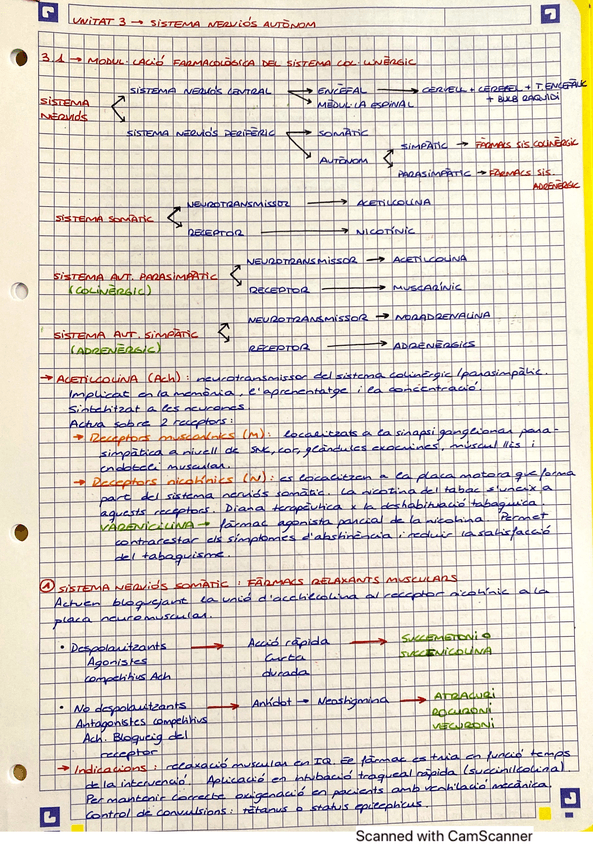 UNITAT 3 → SISTEMA NERVIÓS AUTÒNOM
3.1 → MODUL·LACIÓ FARMACOLÒGICA DEL SISTEMA COL·LINÈRGIC
SISTEMA NERVIÓS
SISTEMA NERVIÓS CENTRAL → ENCÈFAL → CERVELL + CEREBEL + T. ENCEFÀLIC + BULB RAQUIDI
MÈDUL·LA ESPINAL
SISTEMA NERVIÓS PERIFÈRIC → SOMÀTIC
AUTÒNOM
SIMPÀTIC → FÀRMACS SIS COLINÈRGIC
PARASIMPÀTIC → FÀRMACS SIS. ADRENÈRGIC
SISTEMA SOMÀTIC
NEUROTRANSMISSOR → ACETILCOLINA
RECEPTOR → NICOTÍNIC
SISTEMA AUT. PARASIMPÀTIC
(COLINÈRGIC)
NEUROTRANSMISSOR → ACETILCOLINA
RECEPTOR → MUSCARÍNIC
SISTEMA AUT. SIMPÀTIC
(ADRENÈRGIC)
NEUROTRANSMISSOR → NORADRENALINA
RECEPTOR → ADRENÈRGICS
→ ACETILCOLINA (Ach): neurotransmissor del sistema colinèrgic/parasimpàtic.
Implicat en la memòria, l'aprenentatge i la concentració.
Sintetitzat a les neurones.
Actua sobre 2 receptors:
→ Receptors muscarínics (M): localitzats a la sinapsi ganglionar para-
simpàtica a nivell de SNC, cor, glàndules exocrines, múscul llis i
endoteli muscular.
→ Receptors nicotínics (N): es localitzen a la placa motora que forma
part del sistema nerviós somàtic. La nicotina del tabac s'uneix a
aquests receptors. Diana terapèutica x la deshabituació tabàquica
VARENICILINA → fàrmac agonista parcial de la nicotina. Permet
contrarestar els símptomes d'abstinència i reduir la satisfacció
del tabaquisme.
① SISTEMA NERVIÓS SOMÀTIC: FÀRMACS RELAXANTS MUSCULARS
Actuen bloquejant la unió d'acetilcolina al receptor nicotínic a la
placa neuromuscular.
• Despolaritzants → Acció ràpida → SUCCEMETONI O
Agonistes Curta SUCCINICOLINA
competitius Ach durada
• No despolaritzants → Antídot → Neostigmina → ATRACURI
Antagonistes competitius ROCURONI
Ach. Bloqueig del VECURONI
receptor
→ Indicacions: relaxació muscular en IQ. El fàrmac es tria en funció temps
de la intervenció. Aplicació en intubació traqueal ràpida (succinilcolina).
Per mantenir correcte oxigenació en pacients amb ventilació mecànica.
Control de convulsions: tètanus o status epilèpticus.
Scanned with CamScanner